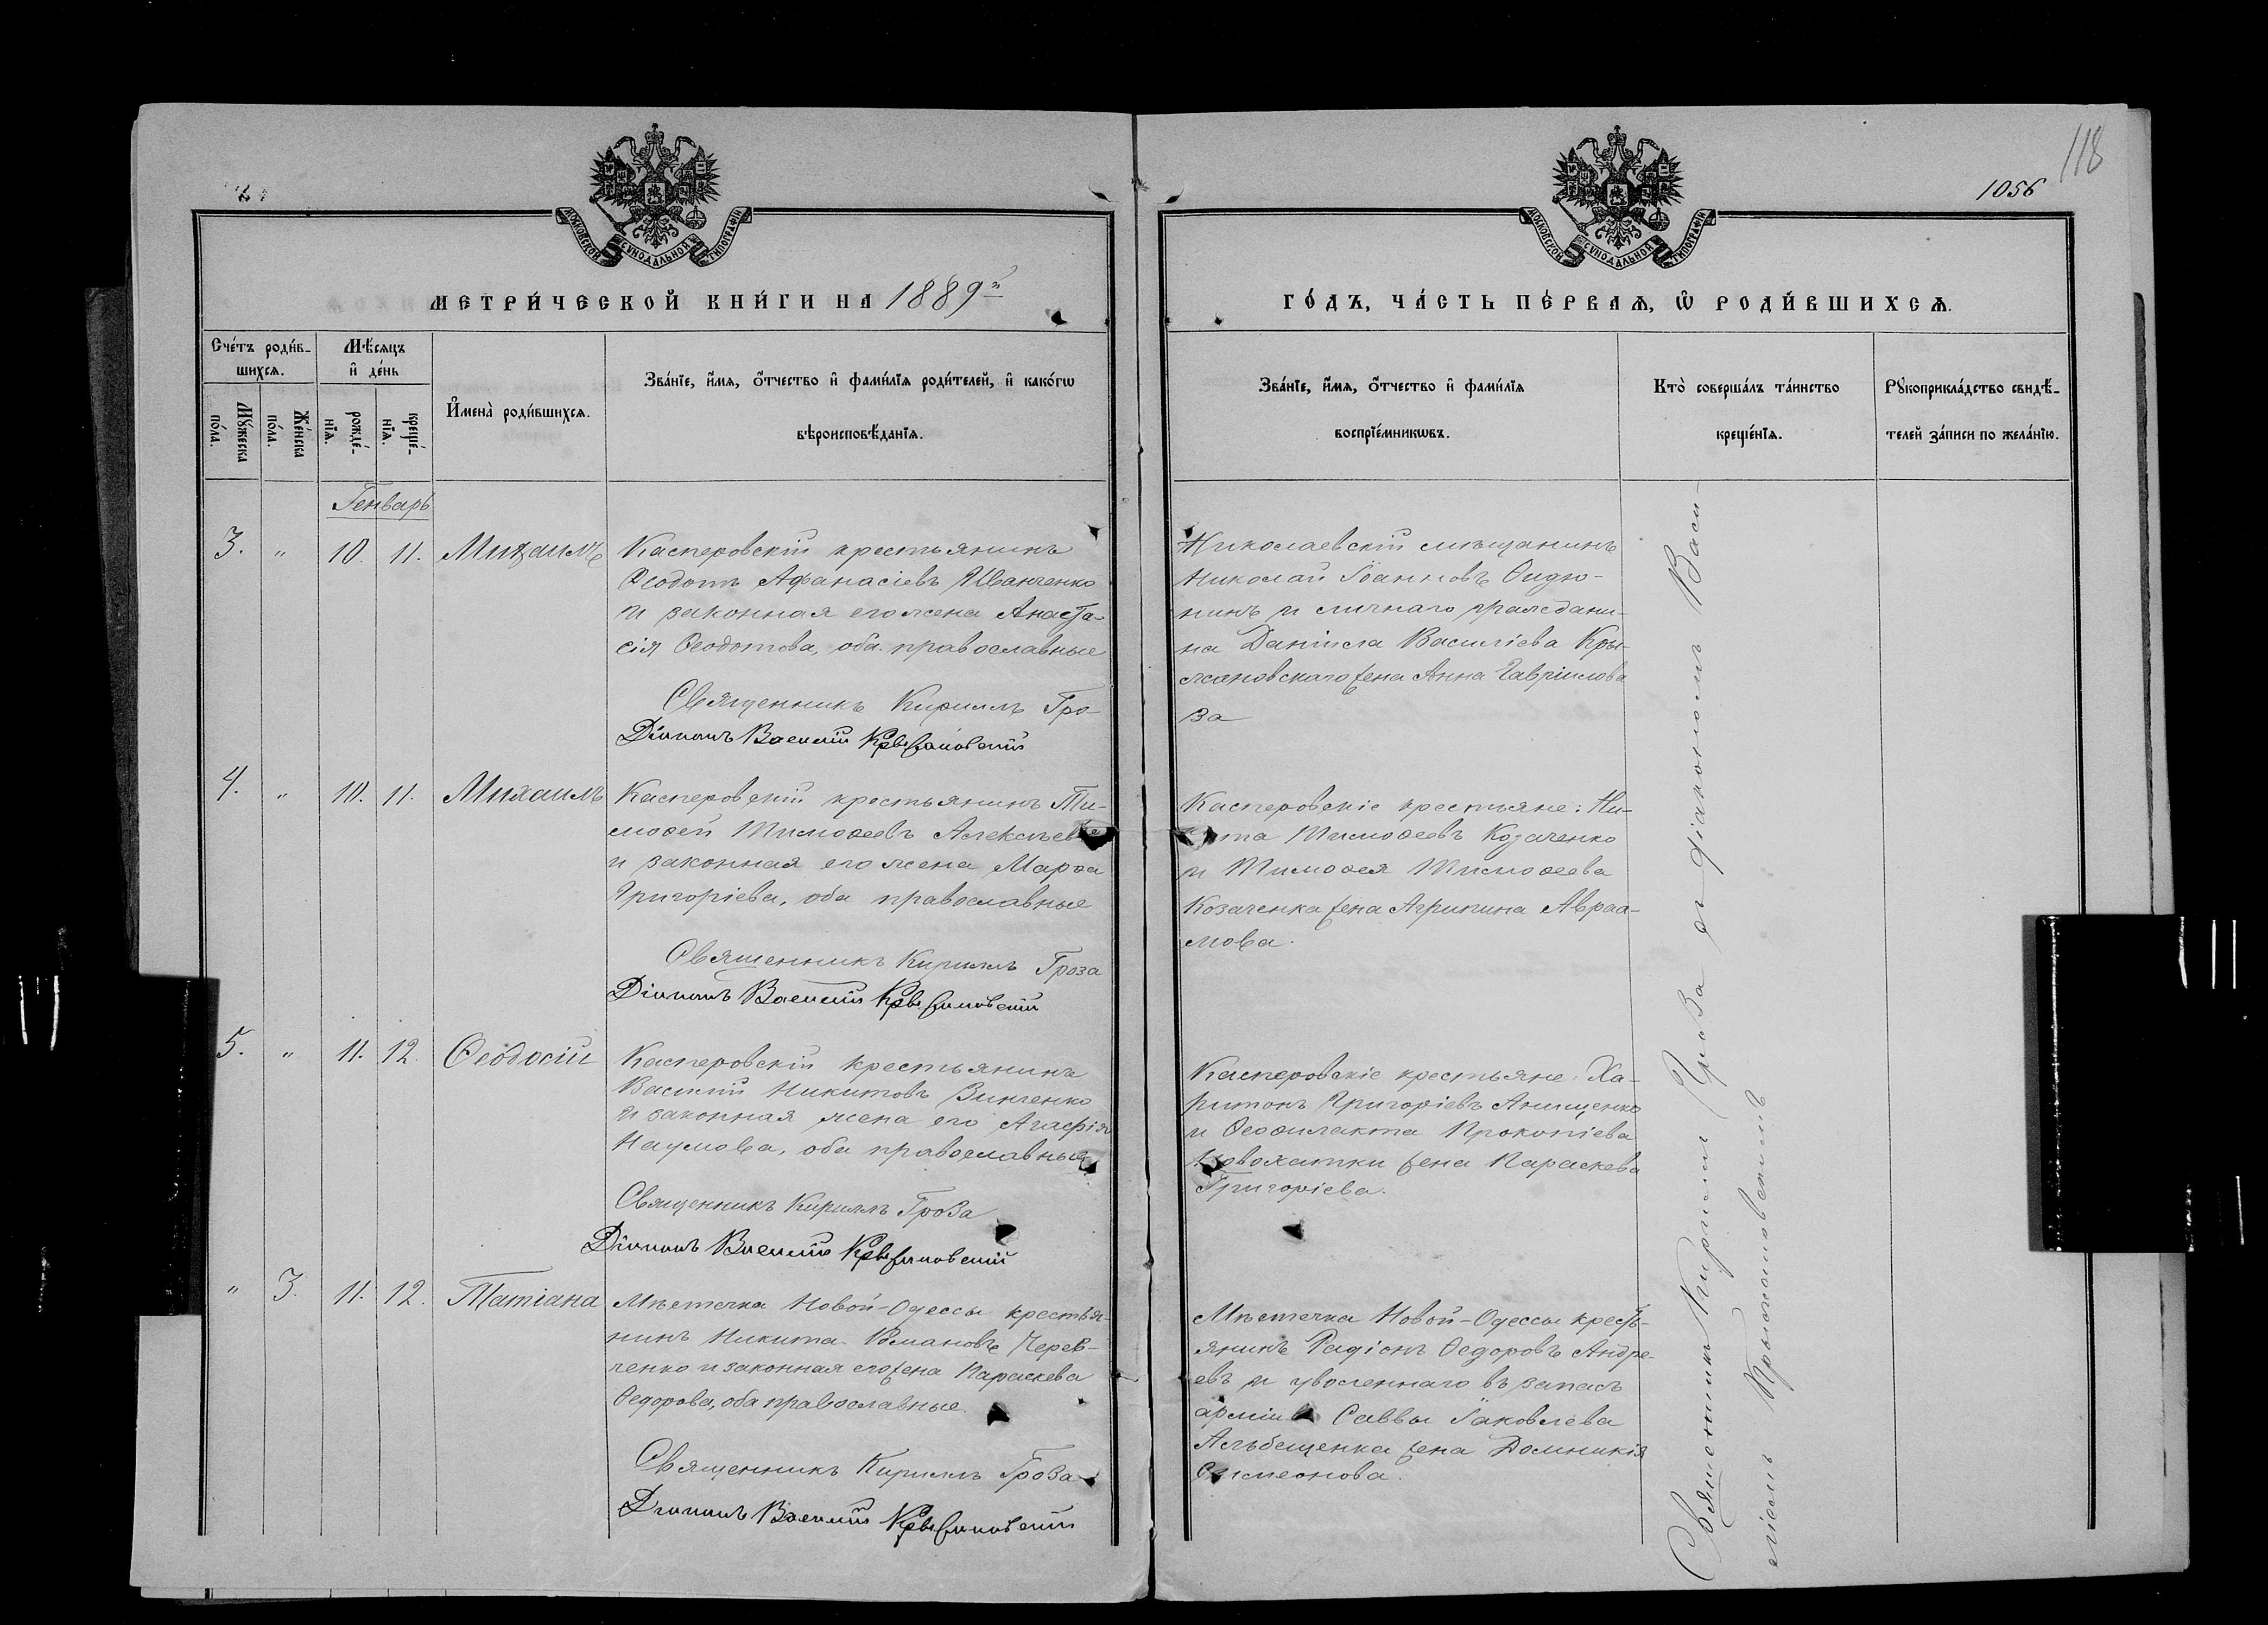 1056
118
МОСКОВСКОЙ СѴНОДАЛЬНОЙ ТИПОГРАФІИ
МОСКОВСКОЙ СѴНОДАЛЬНОЙ ТИПОГРАФІИ
МЕТРИ́ЧЕСКОЙ КНИ́ГИ НА 1889й
ГО́ДЪ, ЧА́СТЬ ПЕ́РВАѦ, Ѡ҆ РОДИ́ВШИХСѦ.
Сче́тъ роди́в-
шихсѧ.
Мꙋ́жеска
по́ла.
Же́нска
по́ла.
Мѣ́сѧцъ
и҆ де́нь
рожде́-
нїѧ.
креще́-
нїѧ.
И҆мена̀ роди́вшихсѧ.
Зва́нїе, и҆́мѧ, ѻ҆́тчество и҆ фами́лїѧ роди́телей, и҆ како́гѡ
вѣроисповѣ́данїѧ.
Зва́нїе, и҆́мѧ, ѻ҆́тчество и҆ фами́лїѧ
воспрїе́мникѡвъ.
Кто̀ соверша́лъ та́инство
креще́нїѧ.
Рꙋкоприкла́дство свидѣ́-
телей за́писи по жела́нїю.
Генварь
3. " 10. 11. Михаилъ
Касперовскій крестьянинъ
Ѳеодотъ Аѳанасіевъ Иванченко
и законная его жена Анаста-
сія Ѳеодотова, оба православные
Священникъ Кириллъ Гро-
за
Діаконъ Василій Крыжановскій
Николаевскій мѣщанинъ
Николай Іоанновъ
нинъ и личнаго граждани-
на Даніила Василіева Кры-
жановскаго жена Анна Гавріилова
4. " 10. 11. Михаилъ
Касперовскій крестьянинъ Ти-
моѳей Тимоѳеевъ
и законная его жена Марѳа
Григоріева, оба православные
Священникъ Кириллъ Гроза
Діаконъ Василій Крыжановскій
Касперовскіе крестьяне: Ни-
кита Тимоѳеевъ Козаченко
и Тимоѳея Тимоѳеева
Козаченка жена Агрипина Авраа-
мова.
5. " 11. 12. Ѳеодосій
Касперовскій крестьянинъ
Василій Никитовъ Зинченко
и законная жена его Агафія
Наумова, оба православные
Священникъ Кириллъ Гроза
Діаконъ Василій Крыжановскій
Касперовскіе крестьяне: Ха-
ритонъ Григоріевъ Анищенко
и Ѳеофилакта Прокопіева
Новохатки жена Параскева
Григоріева.
" 3. 11. 12. Татіана
Мѣстечка Новой-Одессы крестья-
нинъ Никита Романовъ Черев-
ченко и законная его жена Параскева
Ѳедорова, оба православные.
Священникъ Кириллъ Гроза
Діаконъ Василій Крыжановскій
Мѣстечка Новой-Одессы кресть-
янинъ Радіонъ Ѳедоровъ Андре-
евъ и уволеннаго въ запасъ
арміи Саввы Іаковлева
жена Домникія
Симеонова.
Священникъ Кириллъ Гроза съ діакономъ Васи-
ліемъ Крыжановскимъ